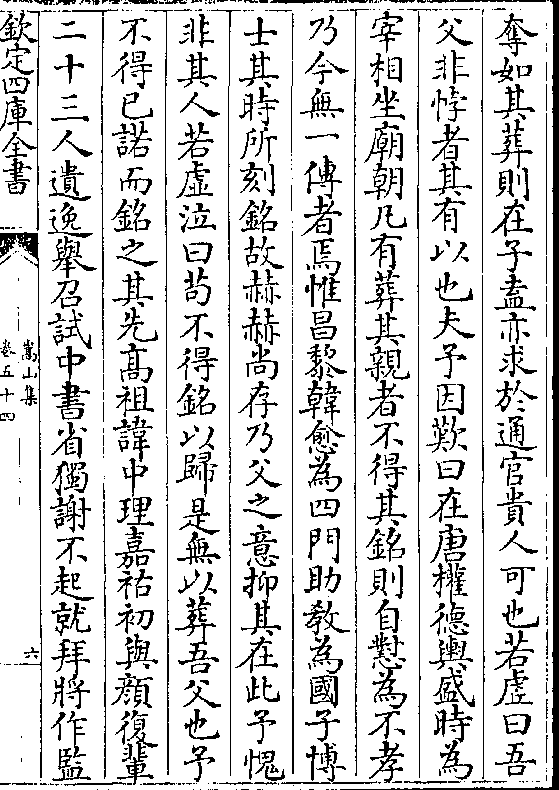 奪如其葬則在子盍亦求於通官貴人可也若虛曰吾
父非悖者其有以也夫予因歎曰在唐權德輿盛時為
宰相坐廟朝凡有葬其親者不得其銘則自懟為不孝
乃今無一傳者焉惟昌黎韓愈為四門助教為國子博
士其時所刻銘故赫赫尚存乃父之意抑其在此予愧
非其人若虛泣曰茍不得銘以歸是無以葬吾父也予
不得已諾而銘之其先髙祖諱中理嘉祐初與顔復輩
二十三人遺逸舉召試中書省獨謝不起就拜將作監
欽定四庫全書
嵩山集
卷五十四
六